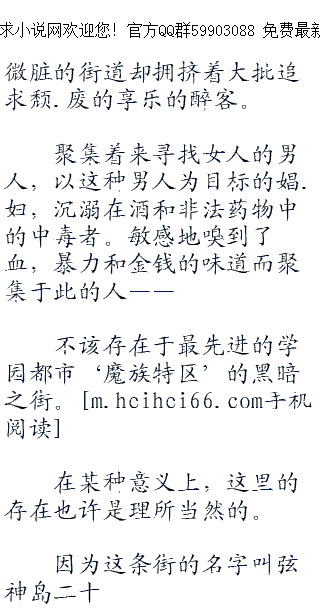 求小说网欢迎您! 官方QQ群59903088 免费最新
微脏的街道却拥挤着大批追
求颓.废的享乐的醉客。
聚集着来寻找女人的男
人，以这种男人为目标的娼.
妇，沉溺在酒和非法药物中
的中毒者。敏感地嗅到了
血，暴力和金钱的味道而聚
集于此的人——
不该存在于最先进的学
园都市‘魔族特区’的黑暗
之街。[m.hcihci66.com手机
阅读]
在某种意义上，这里的
存在也许是理所当然的。
因为这条街的名字叫弦
神岛二十